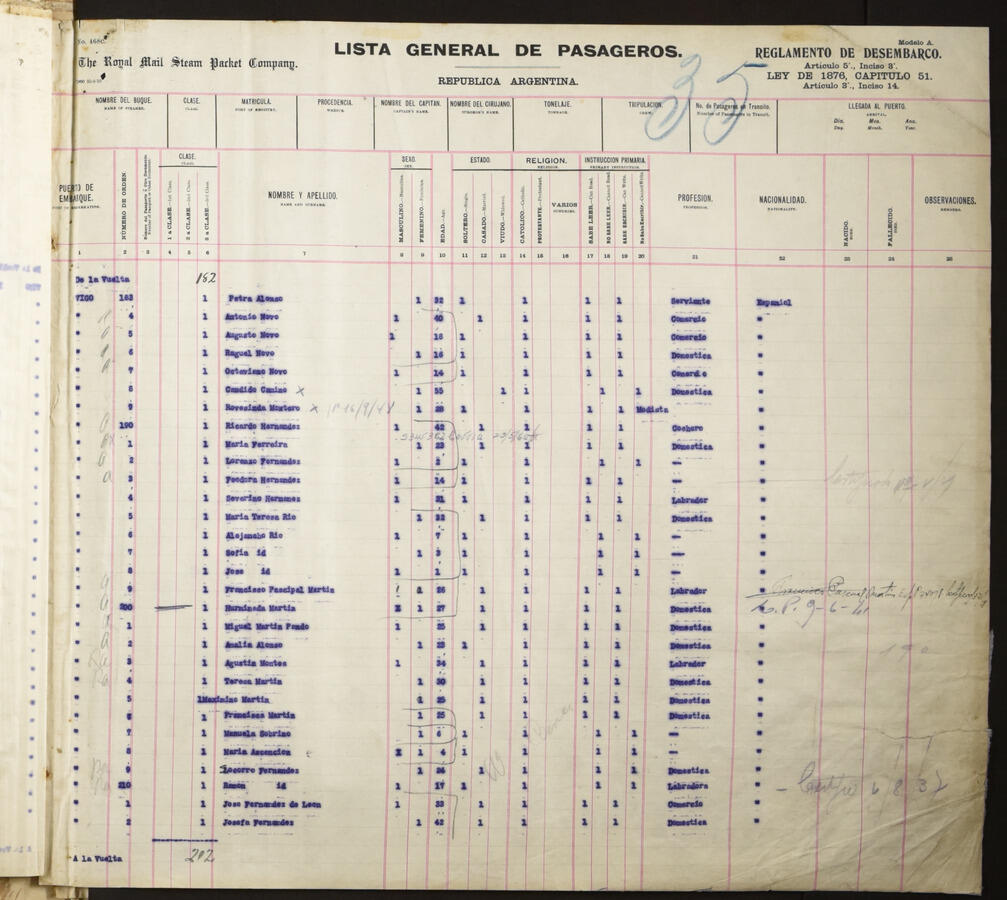 No. 468C.
The Royal Mail Steam Packet Company.
LISTA GENERAL DE PASAGEROS.
REPUBLICA ARGENTINA.
Modelo A.
REGLAMENTO DE DESEMBARCO.
Artículo 5º, Inciso 3º.
LEY DE 1876, CAPITULO 51.
Artículo 3º, Inciso 14.
35
NOMBRE DEL BUQUE. CLASE. MATRICULA. PROCEDENCIA. NOMBRE DEL CAPITAN. NOMBRE DEL CIRUJANO. TONELAJE. TRIPULACION. No. de Pasageros en Transito. LLEGADA AL PUERTO.
NAME OF STEAMER. CLASS. PORT OF REGISTRY. WHENCE. CAPTAIN'S NAME. SURGEON'S NAME. TONNAGE. CREW. Number of Passengers in Transit. ARRIVAL.
Dia. Mes. Ano.
Day. Month. Year.
PUERTO DE EMBAIQUE. NUMERO DE ORDEN. CLASE. NOMBRE Y APELLIDO. SEXO. ESTADO. RELIGION. INSTRUCCION PRIMARIA. PROFESION. NACIONALIDAD. OBSERVACIONES.
1ª CLASE.—1st Class. 2ª CLASE.—2nd Class. 3ª CLASE.—3rd Class. NAME AND SURNAME. MASCULINO.—Masculine. FEMENINO.—Feminine. EDAD.—Age. SOLTERO.—Single. CASADO.—Married. VIUDO.—Widower. CATOLICO.—Catholic. PROTESTANTE.—Protestant. VARIOS SUNDRIES. SABE LEER.—Can Read. NO SABE LEER.—Cannot Read. SABE ESCRIBIR.—Can Write. No Sabe Escribir.—Cannot Write. PROFESSION. NATIONALITY. NACIDO. BORN. FALLECIDO. DIED. REMARKS.
1 2 3 4 5 6 7 8 9 10 11 12 13 14 15 16 17 18 19 20 21 22 23 24 25
De la Vuelta 182
VIGO 183 1 Petra Alonso 1 32 1 1 1 1 Serviente Espaniol
" 4 1 Antonio Novo 1 40 1 1 1 1 Comercio "
" 5 1 Augusto Novo 1 18 1 1 1 1 Comercio "
" 6 1 Raquel Novo 1 16 1 1 1 1 Domestica "
" 7 1 Octaviano Novo 1 14 1 1 1 1 Comercio "
" 8 1 Candido Camino x 1 55 1 1 1 1 Domestica "
" 9 1 Rovesinda Montero x 1 28 1 1 1 1 Modista "
" 190 1 Ricardo Hernandez 1 42 1 1 1 1 Cochero "
" 1 1 Maria Ferreira 1 23 1 1 1 1 Domestica "
" 2 1 Lorenzo Fernandez 1 2 1 1 1 1 — "
" 3 1 Feodora Hernandez 1 14 1 1 1 1 — "
" 4 1 Severino Hernanez 1 31 1 1 1 1 Labrador "
" 5 1 Maria Teresa Rio 1 32 1 1 1 1 Domestica "
" 6 1 Alejancho Rio 1 7 1 1 1 1 — "
" 7 1 Sofia id 1 3 1 1 1 1 — "
" 8 1 Jose id 1 1 1 1 1 1 — "
" 9 1 Francisco Pascipal Martin 1 26 1 1 1 1 Labrador "
" 200 1 Herminada Martin 1 27 1 1 1 1 Domestica " C.P. 9-6-41
" 1 1 Miguel Martin Pando 1 25 1 1 1 1 Domestica "
" 2 1 Amalia Alonso 1 23 1 1 1 1 Domestica "
" 3 1 Agustin Montes 1 34 1 1 1 1 Labrador "
" 4 1 Teresa Martin 1 30 1 1 1 1 Domestica "
" 5 1 Maximino Martin 1 25 1 1 1 1 Domestica "
" 6 1 Francisca Martin 1 25 1 1 1 1 Domestica "
" 7 1 Manuela Sobrino 1 6 1 1 1 1 — "
" 8 1 Maria Ascencion 1 4 1 1 1 1 — "
" 9 1 Socorro Fernandez 1 24 1 1 1 Domestica "
" 210 1 Ramon id 1 17 1 1 1 1 Labradora "
" 1 1 Jose Fernandez de Leon 1 33 1 1 1 1 Comercio "
" 2 1 Josefa Fernandez 1 42 1 1 1 1 Domestica "
A la Vuelta 212